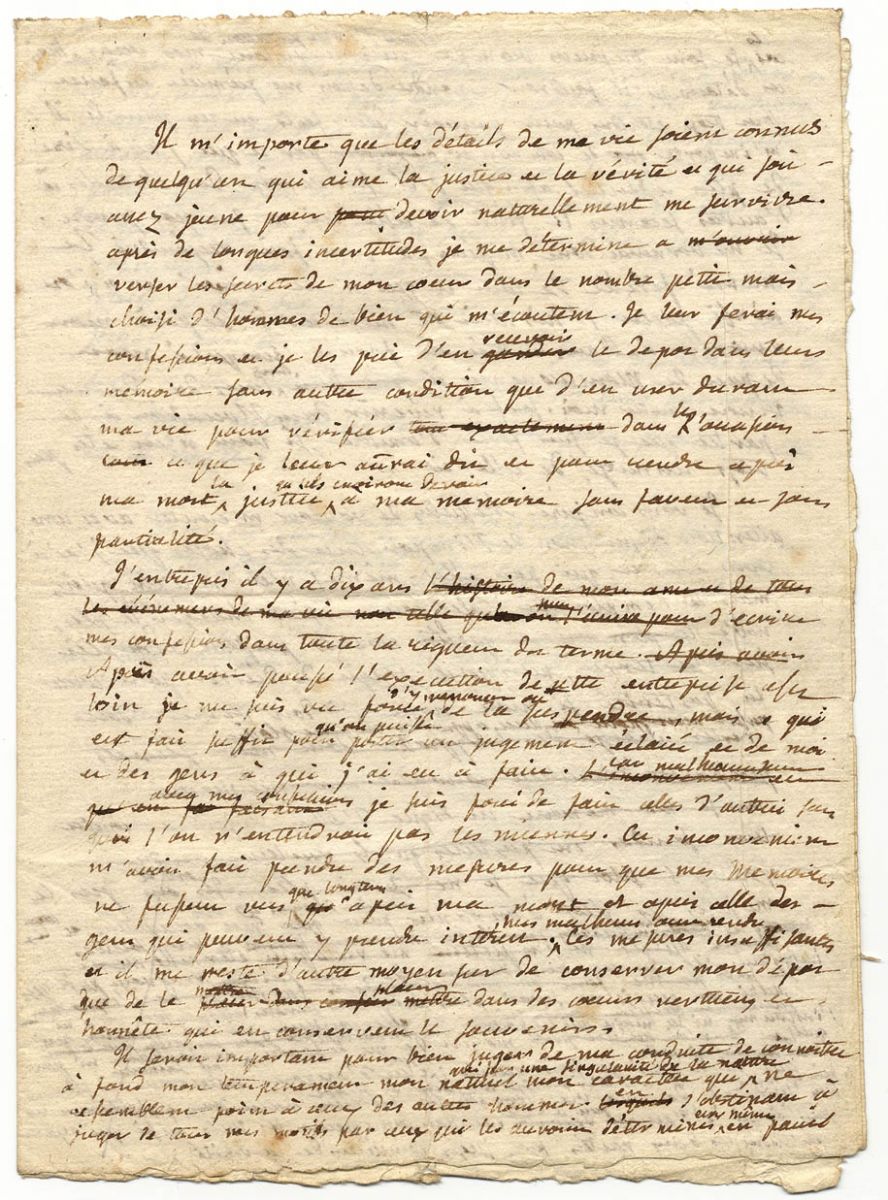 Il m'importe que les détails de ma vie soient connus
de quelqu'un qui aime la justice et la vérité et qui soit
assez jeune pour devoir naturellement me survivre.
après de longues incertitudes je me détermine a m'ouvrir
verser les secrets de mon coeur dans le nombre petit mais
choisi d'hommes de bien qui m'écoutent. Je leur ferai mes
recevoir
confessions et je les prie d'en garder le depot dans leur
mémoire sans autre condition que d'en user durant
ma vie pour vérifier tout exactement dans l'occasion
ce que je leur aurai dit et pour rendre après
la qu'ils croiront devoir
ma mort justice à ma memoire sans faveur et sans
partialité.
J'entrepris il y a dix ans l'histoire de mon ame et de tous
les événemens de ma vie non telle l'écrire pour d'écrire
mes confessions dans toute la rigueur du terme. Après avoir
Après avoir poussé l'execution de cette entreprise assez
d'y renoncer ou
loin je me suis vu forcé de la suspendre, mais ce qui
qu'on puisse
est fait suffit pour porter un jugement éclairé et de moi
et des gens à qui j'ai eu à faire. car malheureusement
avec mes confessions je suis forcé de faire celles d'autrui sans
quoi l'on n'entendroit pas les miennes. Cet inconvenient
m'avoit fait prendre des mesures pour que mes Memoires
que longtems
ne fussent vus qu' après ma mort et après celle des
mes malheurs ont rendu
gens qui peuvent y prendre interest. Ces mesures insuffisantes
et il ne me reste d'autre moyen sur de conserver mon dépot
placer
que de le mettre dans des coeurs vertueux et
honnête qui en conservent le souvenirs.
Il seroit important pour bien juger de ma conduite de connoitre
qui par une singularité de la nature
à fond mon temperament mon naturel mon caractère que ne
en
ressemblent point à ceux des autres hommes. s'obstinant à
eux même
juger de tous mes motifs par ceux qui les auroient déterminés en pareil